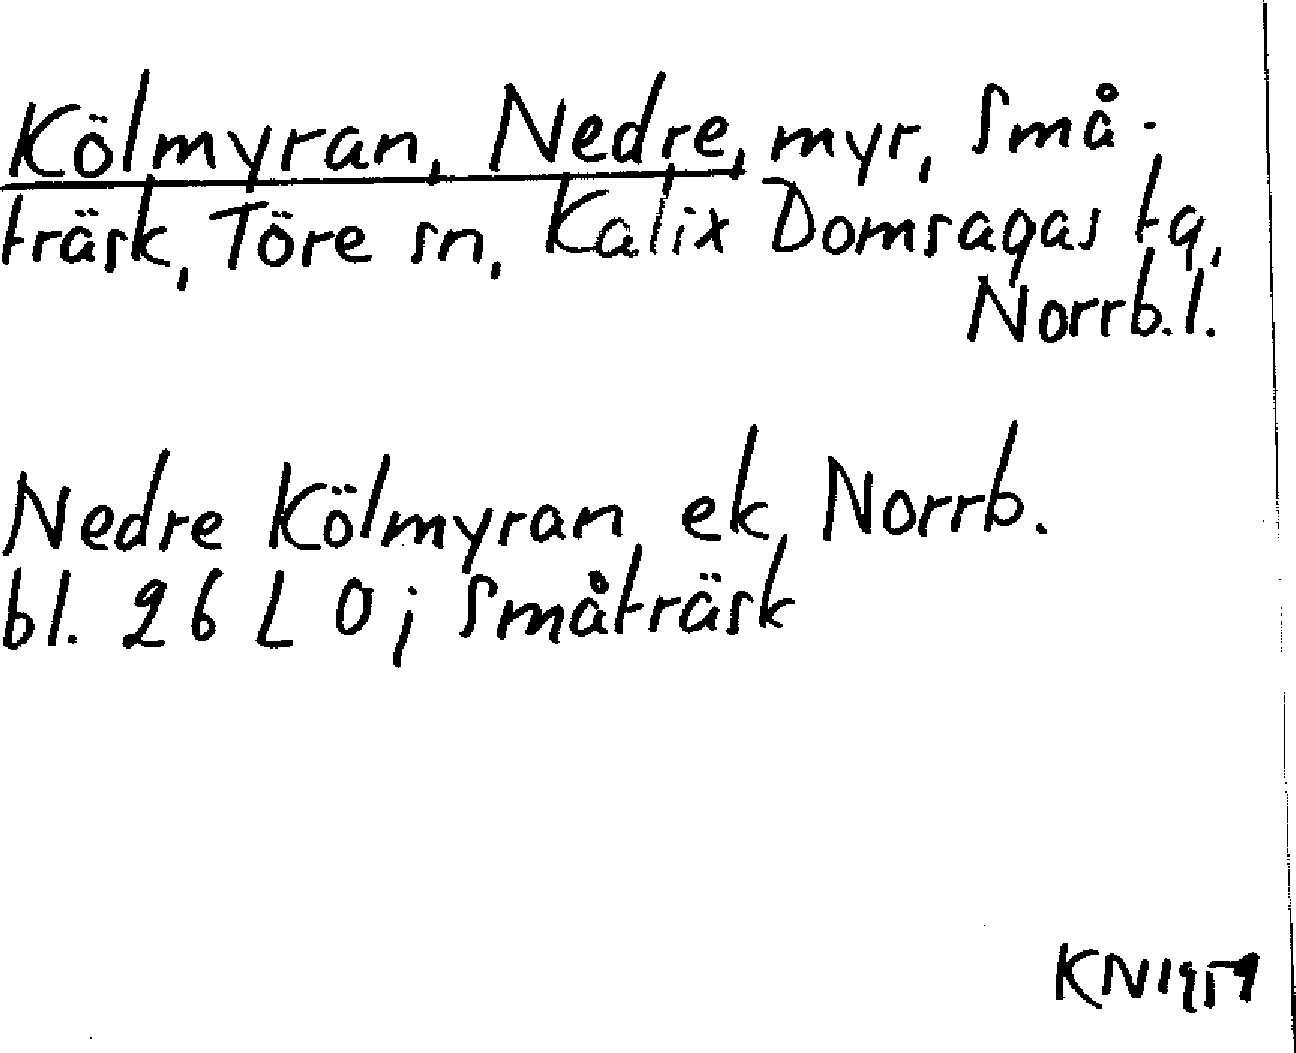 Kölmyran, Nedre, myr, Små-
träsk, Töre sn, Kalix Domsagas tg,
Norrb.l.
Nedre Kölmyran ek Norrb.
bl. 26 L 0; Småträsk
KN 1959